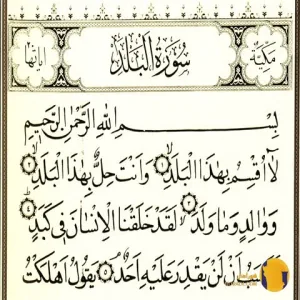 مكية سورة البلد آياتها
بِسْمِ اللَّهِ الرَّحْمَٰنِ الرَّحِيمِ
لَا أُقْسِمُ بِهَٰذَا الْبَلَدِ ١ وَأَنْتَ حِلٌّ بِهَٰذَا الْبَلَدِ ٢
وَوَالِدٍ وَمَا وَلَدَ ٣ لَقَدْ خَلَقْنَا الْإِنْسَانَ فِي كَبَدٍ ٤
أَنْ لَنْ يَقْدِرَ عَلَيْهِ أَحَدٌ ٥ يَقُولُ أَهْلَكْتُ